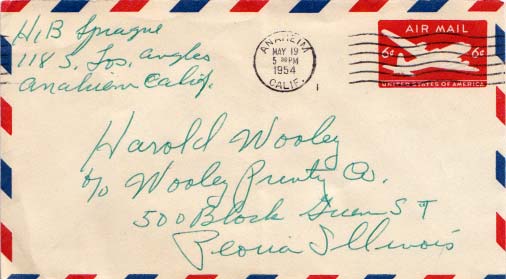 H, B Sprague
118 S. Los. Angles
Anahiem Calif.
ANAHEIM
MAY 19
5 PM
1954
CALIF.
AIR MAIL
6¢ 6¢
UNITED STATES OF AMERICA
Harold Wooley
℅ Wooley Printy Co.
500 Block St
Peoria Illinois